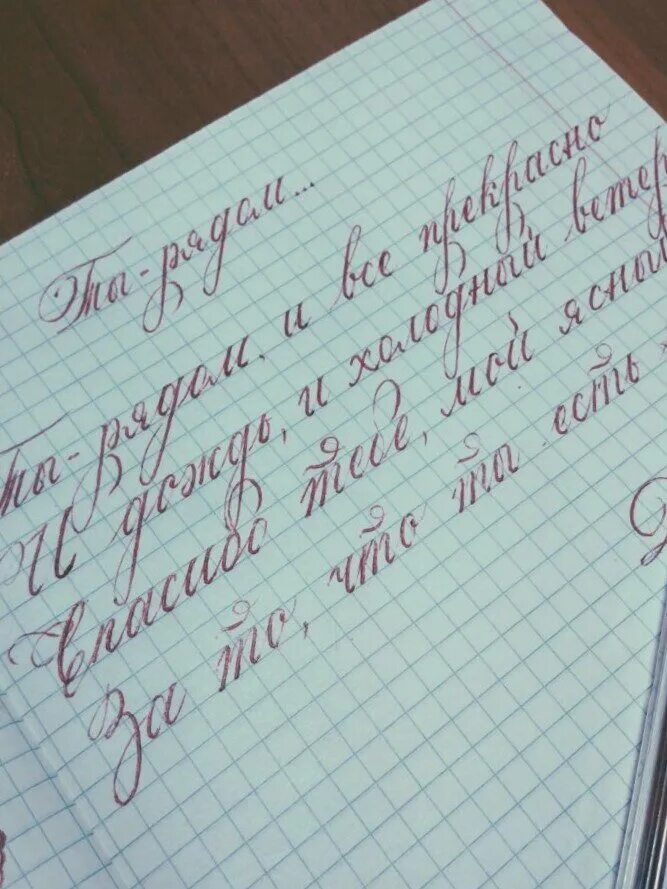 Ты - рядом...
Ты - рядом, и все прекрасно
И дождь, и холодный ветер
Спасибо тебе, мой ясный
За то, что ты есть